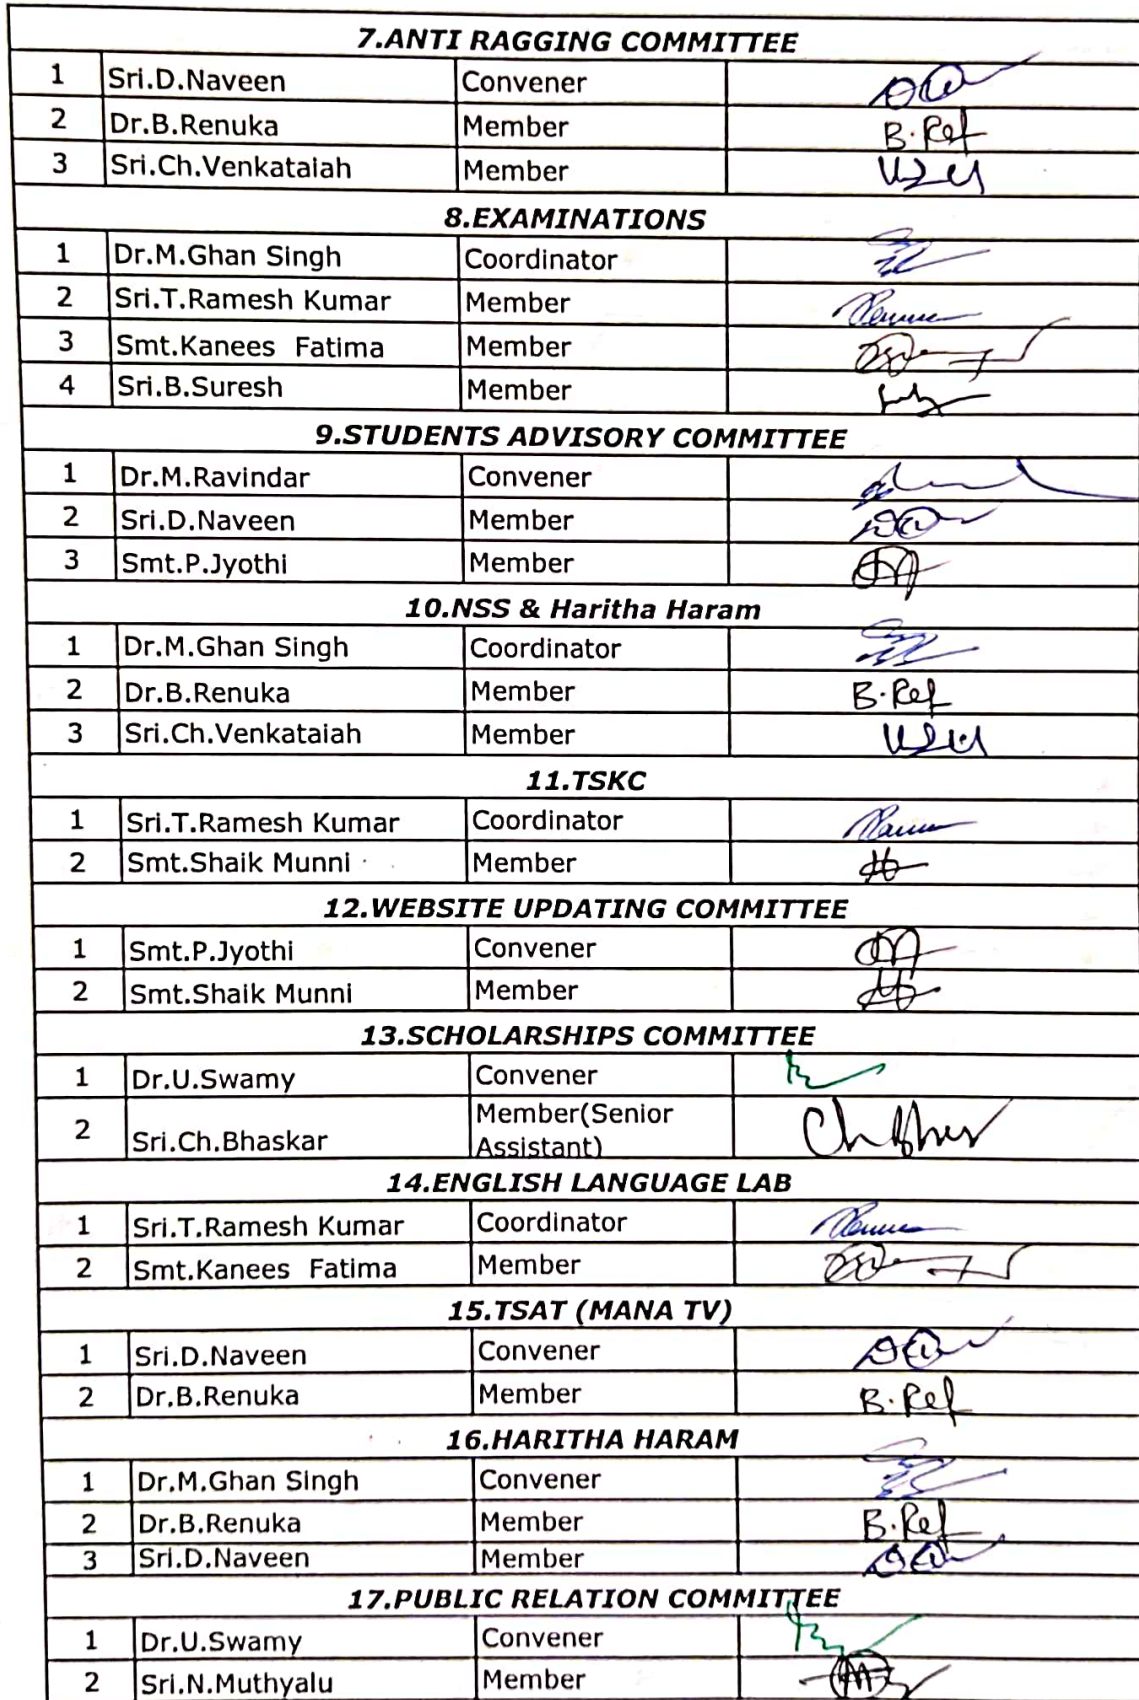 7.ANTI RAGGING COMMITTEE
1 Sri.D.Naveen Convener
2 Dr.B.Renuka Member B.Ref
3 Sri.Ch.Venkataiah Member
8.EXAMINATIONS
1 Dr.M.Ghan Singh Coordinator
2 Sri.T.Ramesh Kumar Member
3 Smt.Kanees Fatima Member
4 Sri.B.Suresh Member
9.STUDENTS ADVISORY COMMITTEE
1 Dr.M.Ravindar Convener
2 Sri.D.Naveen Member
3 Smt.P.Jyothi Member
10.NSS & Haritha Haram
1 Dr.M.Ghan Singh Coordinator
2 Dr.B.Renuka Member B.Ref
3 Sri.Ch.Venkataiah Member
11.TSKC
1 Sri.T.Ramesh Kumar Coordinator
2 Smt.Shaik Munni Member
12.WEBSITE UPDATING COMMITTEE
1 Smt.P.Jyothi Convener
2 Smt.Shaik Munni Member
13.SCHOLARSHIPS COMMITTEE
1 Dr.U.Swamy Convener
2 Sri.Ch.Bhaskar Member(Senior
Assistant)
14.ENGLISH LANGUAGE LAB
1 Sri.T.Ramesh Kumar Coordinator
2 Smt.Kanees Fatima Member
15.TSAT (MANA TV)
1 Sri.D.Naveen Convener
2 Dr.B.Renuka Member B.Ref
16.HARITHA HARAM
1 Dr.M.Ghan Singh Convener
2 Dr.B.Renuka Member B.Ref
3 Sri.D.Naveen Member
17.PUBLIC RELATION COMMITTEE
1 Dr.U.Swamy Convener
2 Sri.N.Muthyalu Member